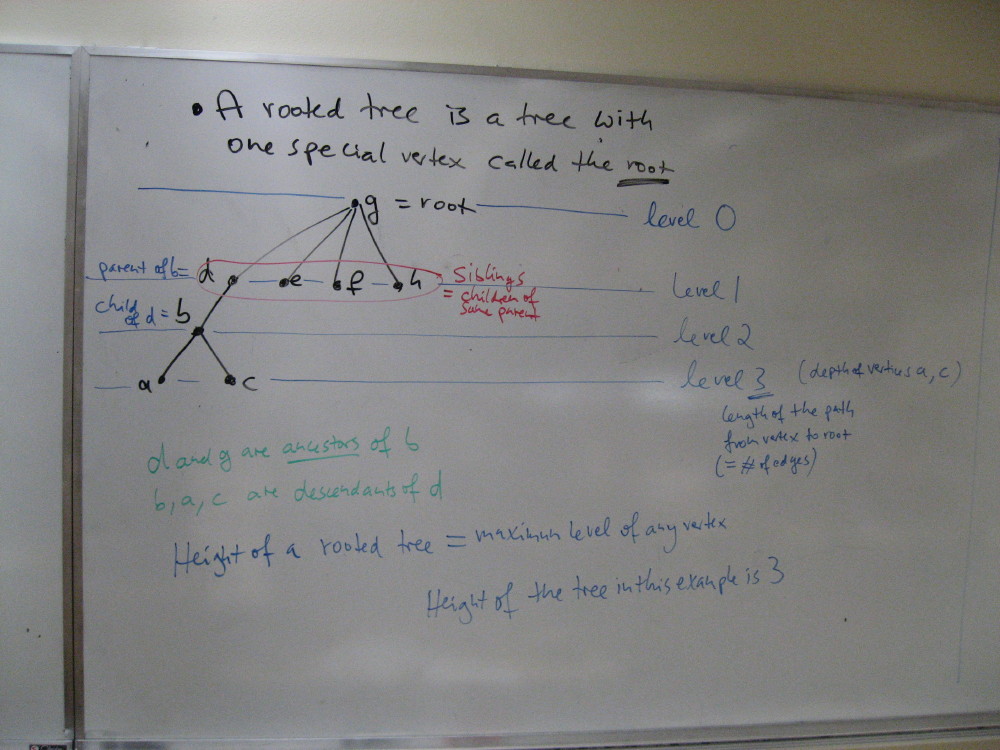 • A rooted tree is a tree with
one special vertex called the root
g = root
level 0
parent of b = d
e
f
h
Siblings
= children of
same parent
level 1
child
of d = b
level 2
a
c
level 3 (depth of vertices a, c)
length of the path
from vertex to root
(= # of edges)
d and g are ancestors of b
b, a, c are descendants of d
Height of a rooted tree = maximum level of any vertex
Height of the tree in this example is 3